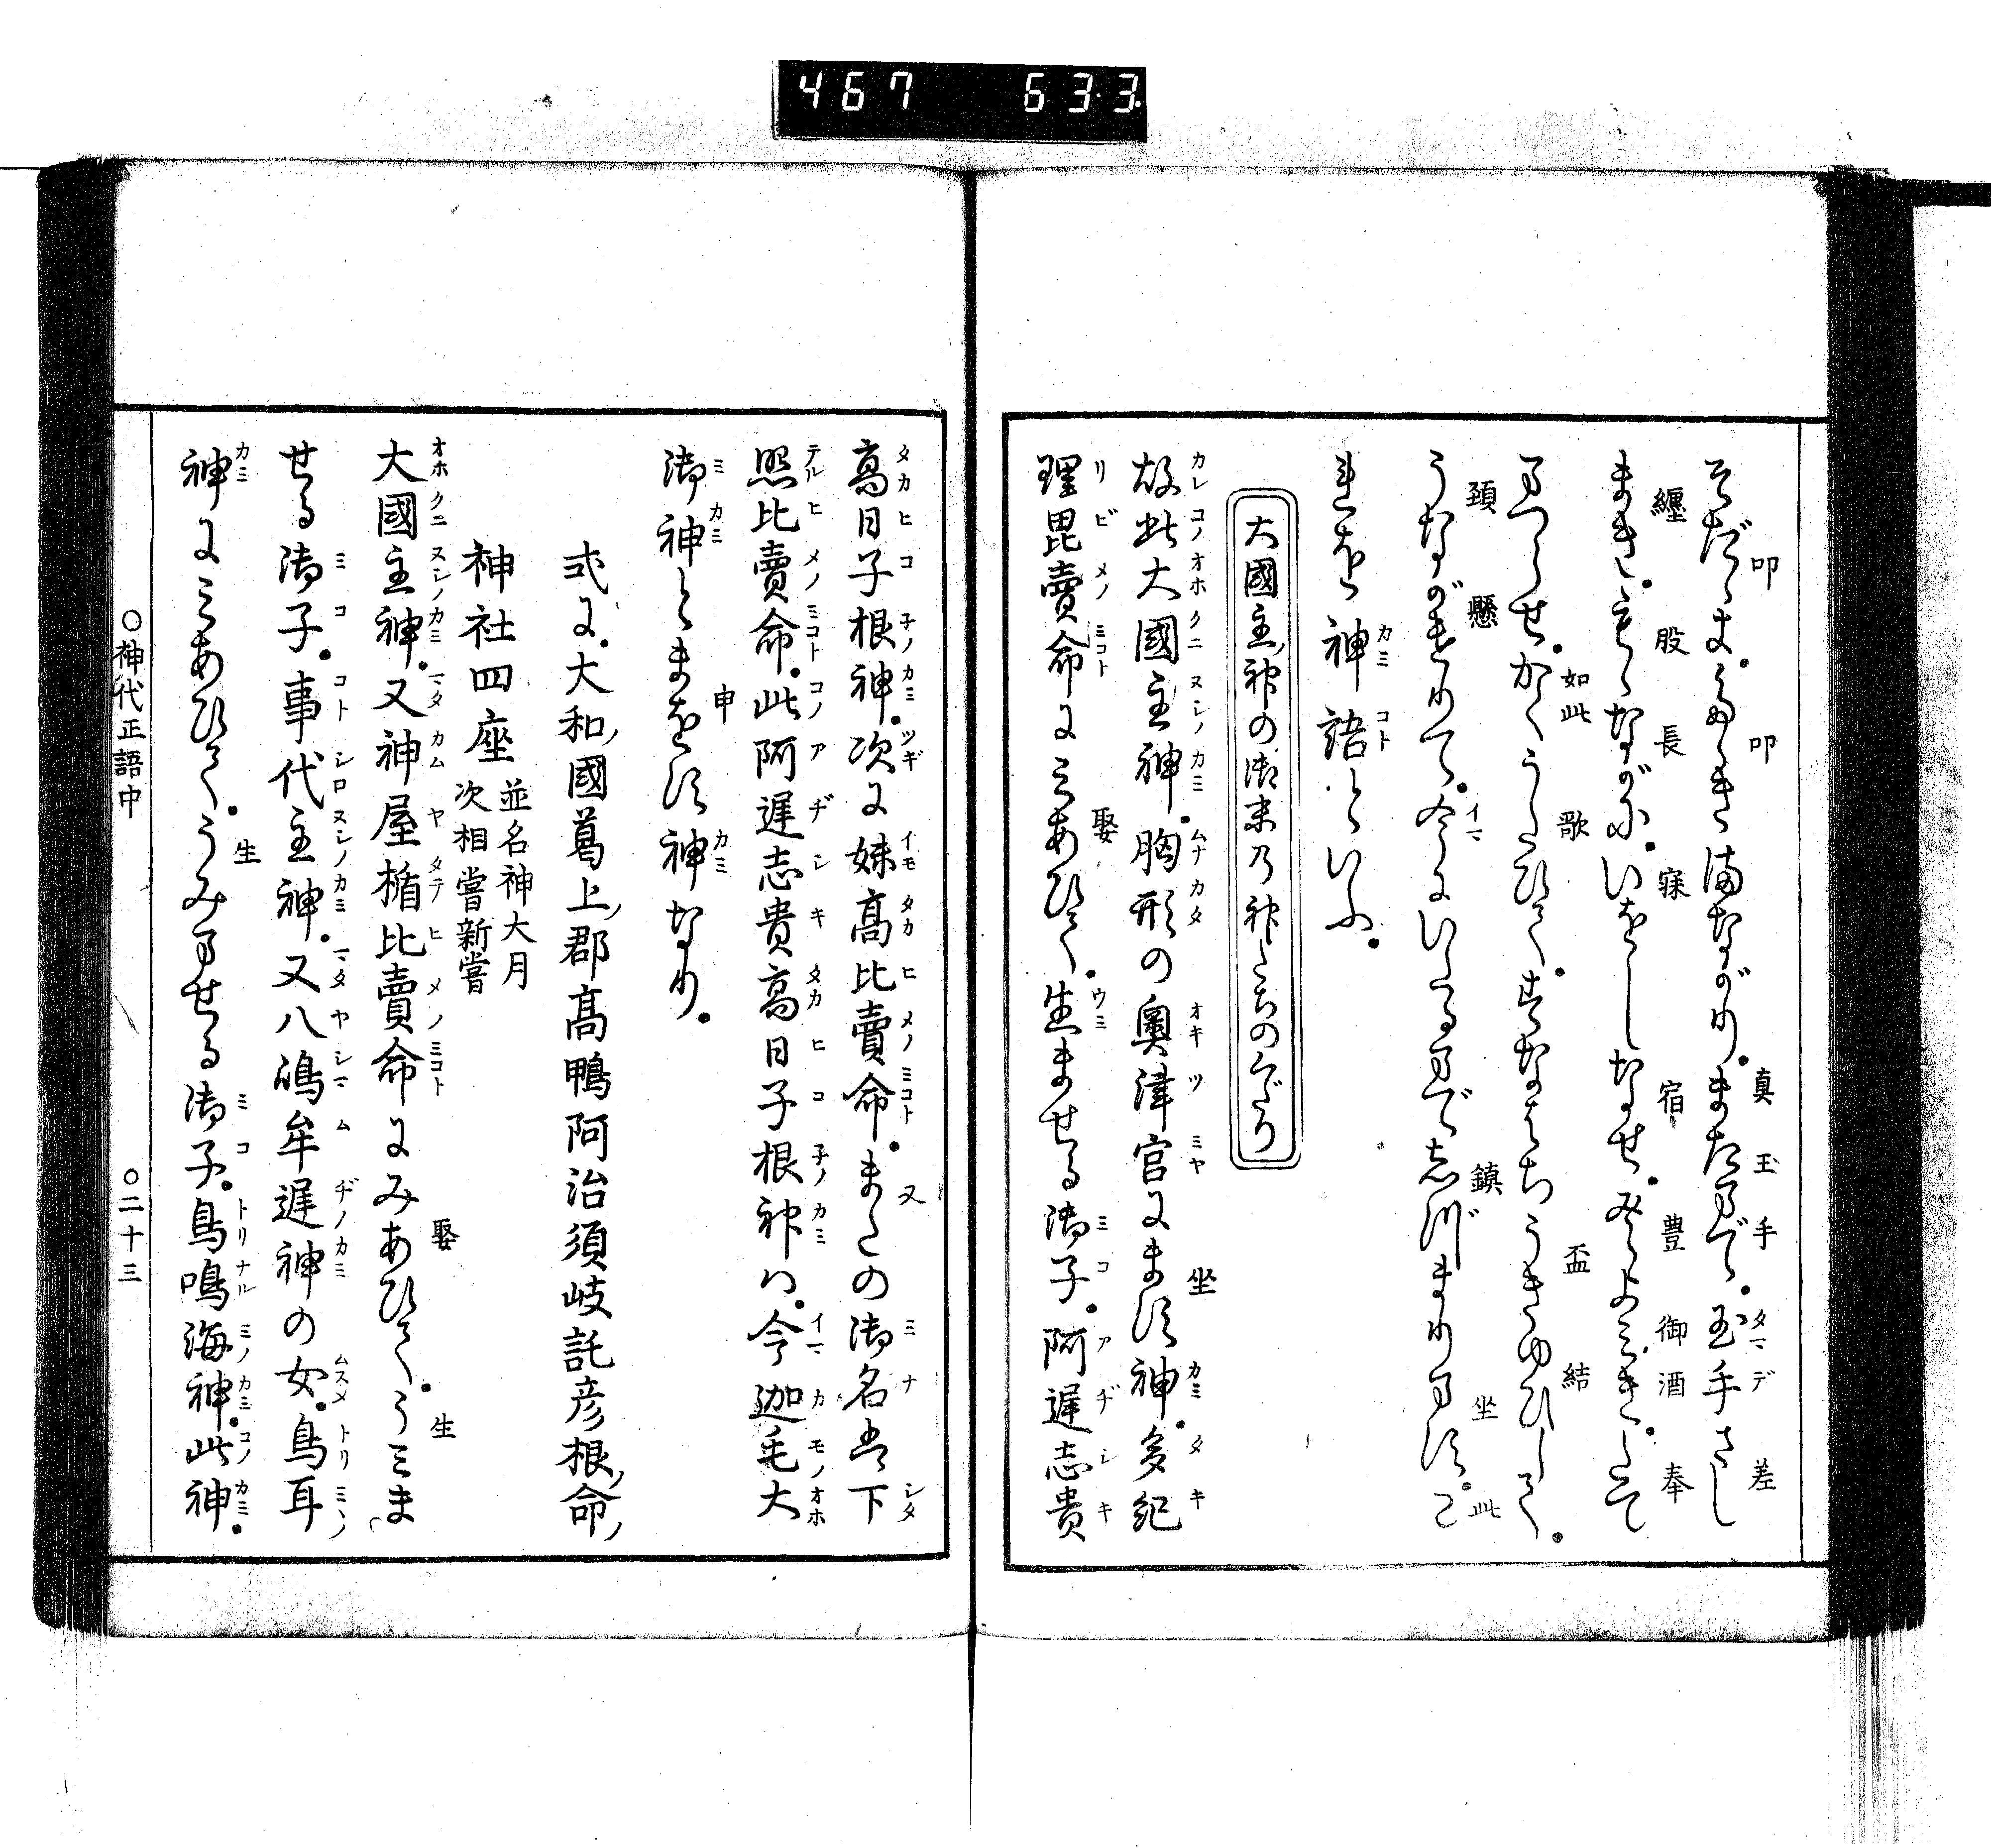 467 63.3.
そだゝき。たゝきまながり。またまで。玉手さし
まき。もゝながに。いをしなせ。とよみき。たて
まつらせ。かくうたひて。すなはちうきゆひして。
うながけりて。今にいたるまで志づまります。こ
れを神語といふ。
大國主神の御末乃神たちのくだり
故此大國主神。胸形の奧津宮にます神。多紀
理毘賣命にみあひて。生ませる御子。阿遲志貴
高日子根神。次に妹高比賣命。またの御名は下
照比賣命。此阿遲志貴高日子根神は。今迦毛大
御神とまをす神なり。
式に。大和國葛上郡高鴨阿治須岐託彦根命
神社四座 並名神大月次相嘗新嘗
大國主神。又神屋楯比賣命にみあひて。うみま
せる御子。事代主神。又八嶋牟遲神の女。鳥耳
神にみあひて。うみませる御子。鳥鳴海神。此神。
○神代正語中 ○二十三